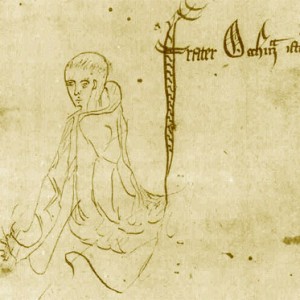 frater Occhm̄ ist